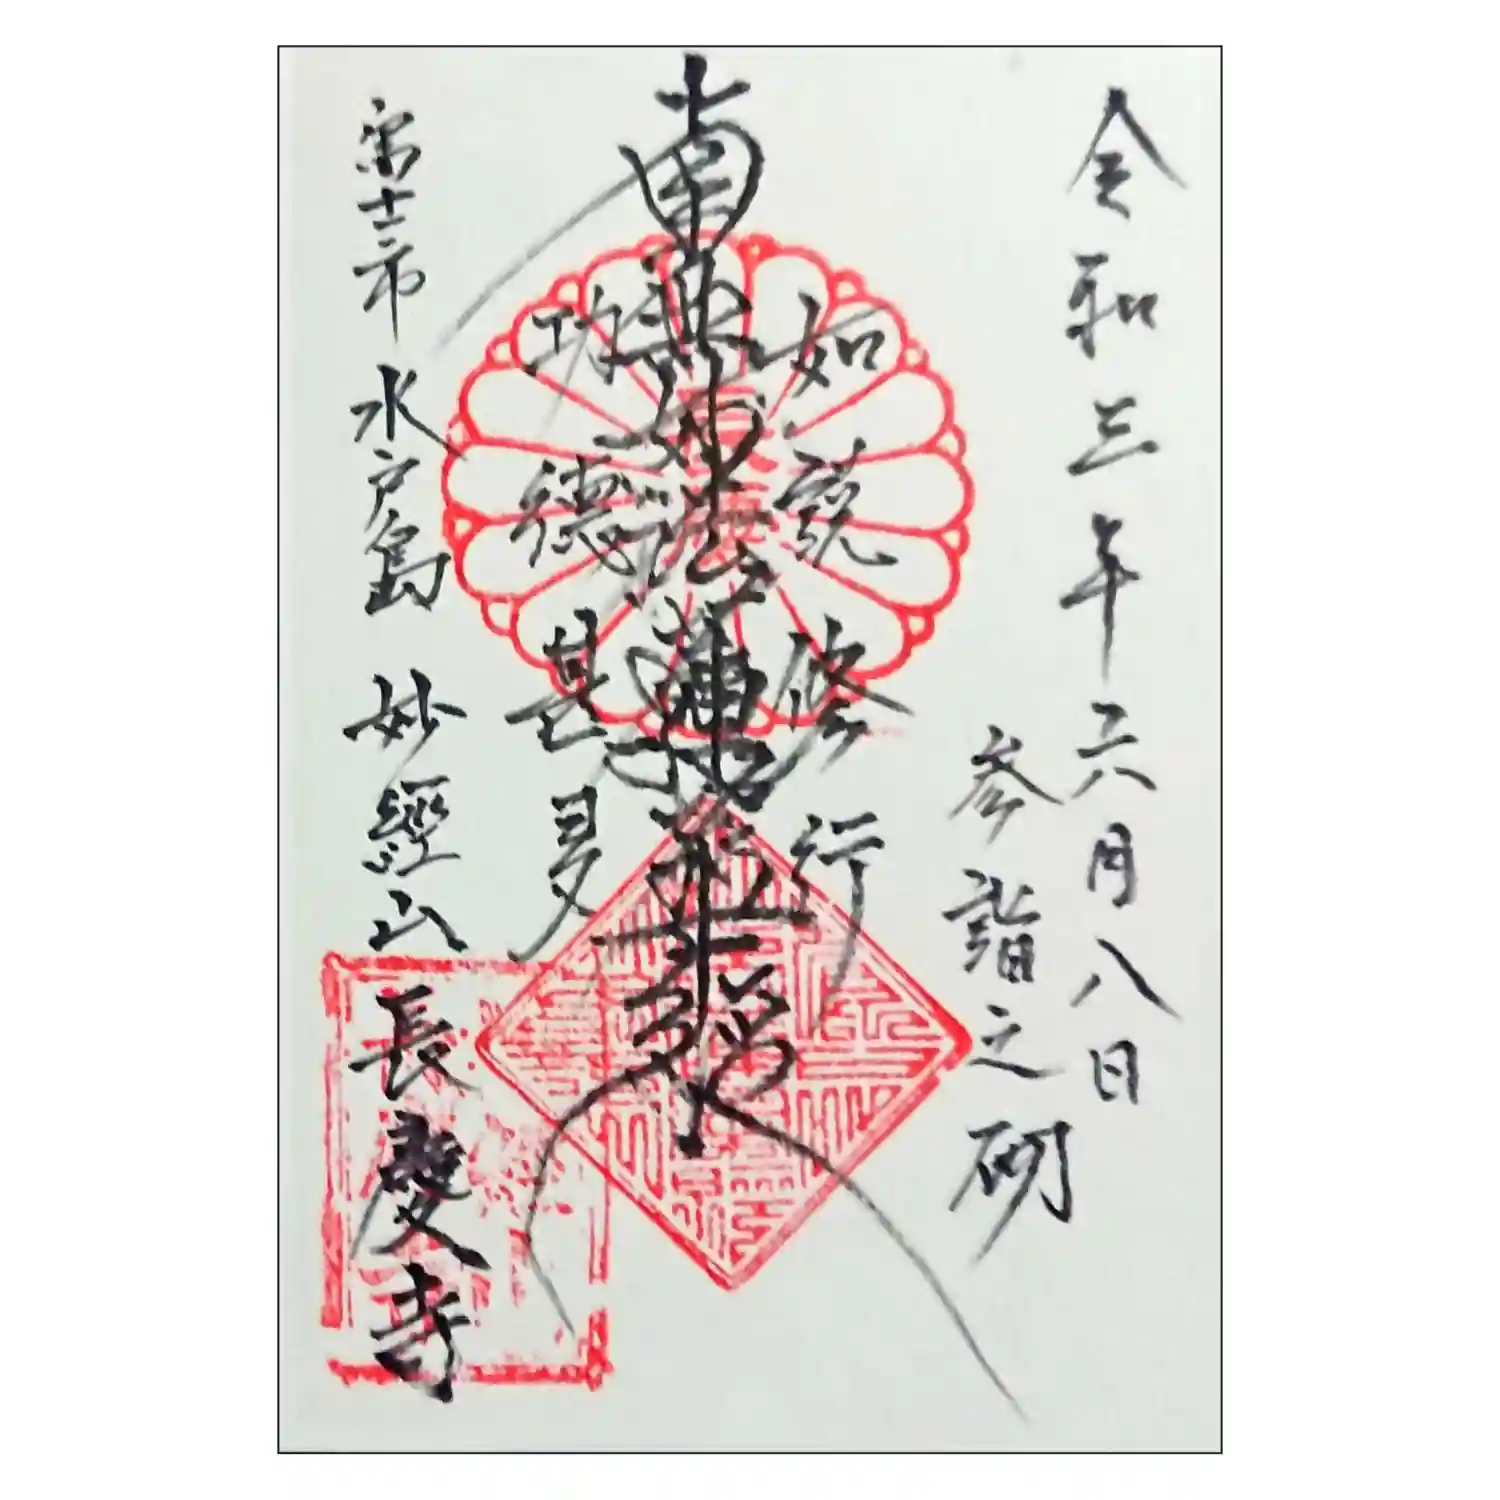 令和三年六月八日
参詣之砌
如說修行
南無妙法蓮華経
功徳甚多
富士市水戸島 妙經山 長慶寺